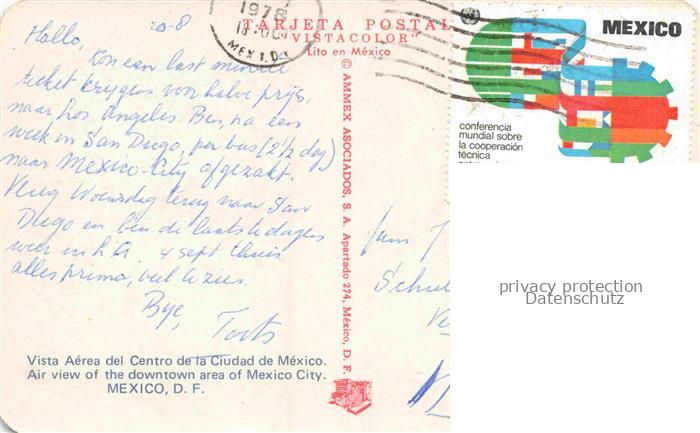 20-8
Hallo,
Kon een last minute
ticket krijgen voor halve prijs.
naar Los Angeles. Ben, na een
week in San Diego, per bus (2½ dag)
naar Mexico-City afgezakt.
Vlieg Woensdag terug naar San
Diego en ben de laatste dagen
weer in L.A. 4 sept. thuis
alles prima, veel te zien.
Bye,
Toots
Vista Aérea del Centro de la Ciudad de México.
Air view of the downtown area of Mexico City.
MEXICO, D. F.
TARJETA POSTAL
"VISTACOLOR"
Lito en México
© AMMEX ASOCIADOS, S. A. Apartado 274, México, D. F.
1978
MEX 1, D.F.
MEXICO
conferencia
mundial sobre
la cooperación
técnica
Fam
privacy protection
Datenschutz